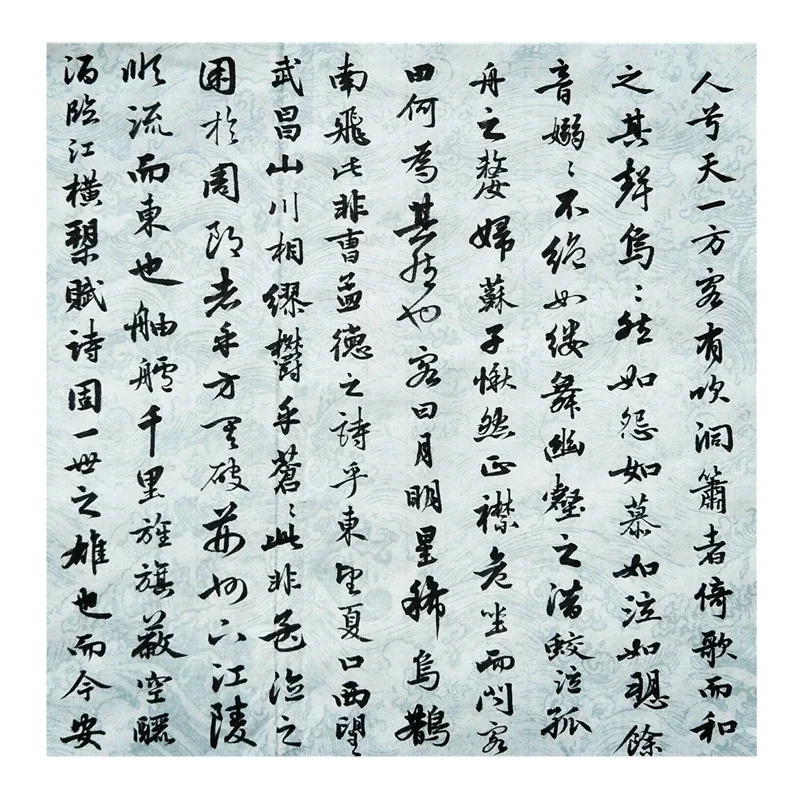 人兮天一方客有吹洞簫者倚歌而和
之其聲烏〻然如怨如慕如泣如餘
音嫋〻不絕如縷舞幽壑之潛蛟泣孤
舟之嫠婦蘇子愀然正襟危坐而問客
曰何為其然也客曰月明星稀烏鵲
南飛此非曹孟德之詩乎東望夏口西望
武昌山川相繆鬱乎蒼〻此非孟德之
困於周郎者乎方其破荊州下江陵
順流而東也舳艫千里旌旗蔽空釃
酒臨江橫槊賦詩固一世之雄也而今安